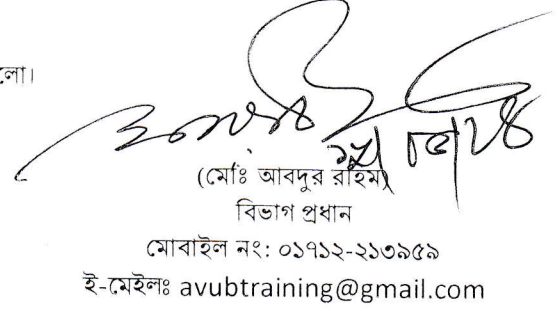 লো।
(মোঃ আবদুর রহিম)
বিভাগ প্রধান
মোবাইল নং: ০১৭১২-২১৩৯৫৯
ই-মেইলঃ avubtraining@gmail.com